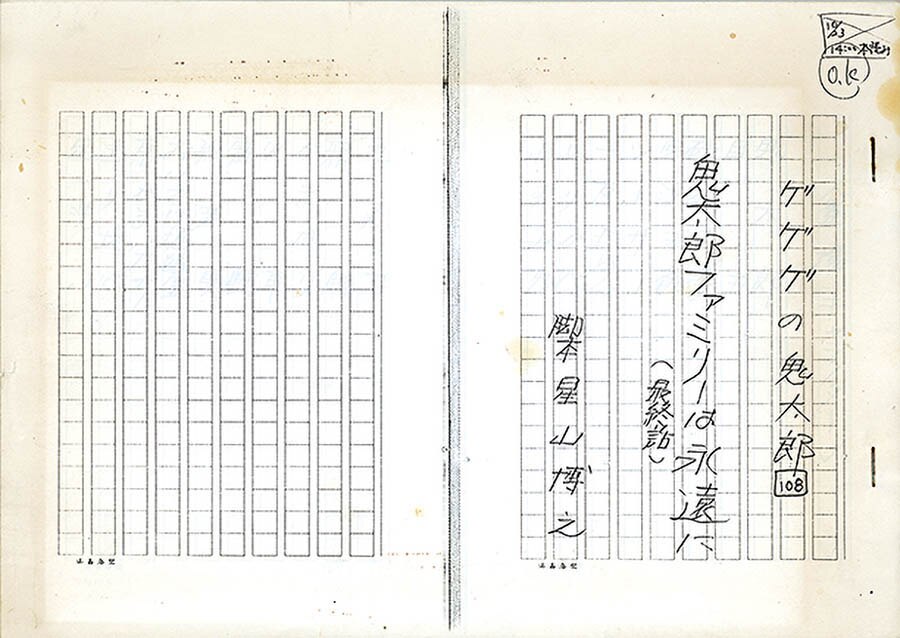 10/23
14:00本読み
O.K
ゲゲゲの鬼太郎
108
鬼太郎ファミリーは永遠に
(最終話)
脚本 星山博之